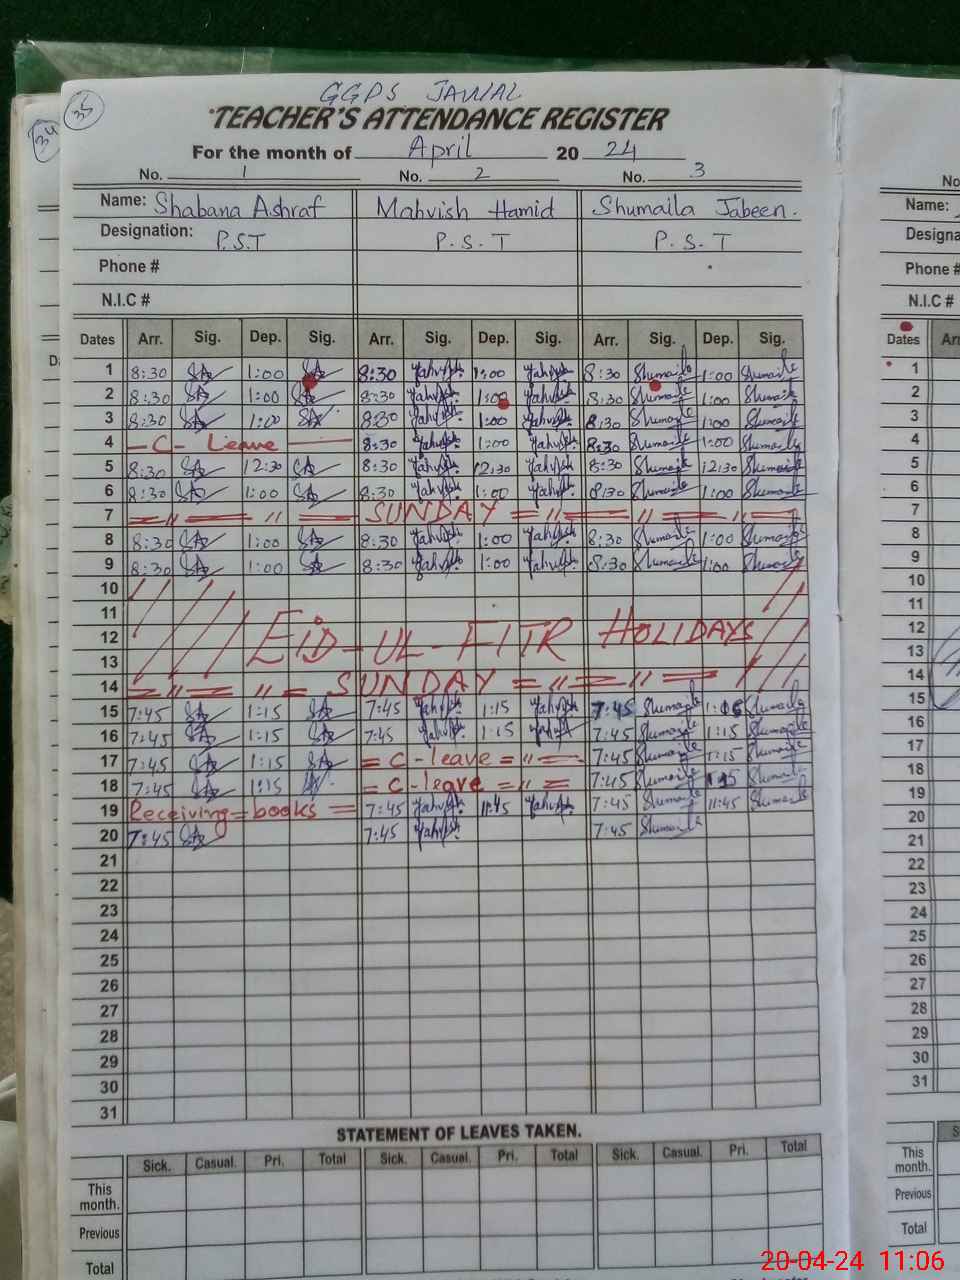 GGPS JAWAL
35
34
TEACHER'S ATTENDANCE REGISTER
For the month of April 20 24
No. 1 No. 2 No. 3
Name: Shabana Ashraf Mahvish Hamid Shumaila Jabeen.
Designation: P.S.T P.S.T P.S.T
Phone #
N.I.C #
Dates Arr. Sig. Dep. Sig. Arr. Sig. Dep. Sig. Arr. Sig. Dep. Sig.
1 8:30 SA 1:00 SA 8:30 Mahvish 1:00 Mahvish 8:30 Shumaila 1:00 Shumaila
2 8:30 SA 1:00 SA 8:30 Mahvish 1:00 Mahvish 8:30 Shumaila 1:00 Shumaila
3 8:30 SA 1:00 SA 8:30 Mahvish 1:00 Mahvish 8:30 Shumaila 1:00 Shumaila
4 - C - Leave 8:30 Mahvish 1:00 Mahvish 8:30 Shumaila 1:00 Shumaila
5 8:30 SA 12:30 SA 8:30 Mahvish 12:30 Mahvish 8:30 Shumaila 12:30 Shumaila
6 8:30 SA 1:00 SA 8:30 Mahvish 1:00 Mahvish 8:30 Shumaila 1:00 Shumaila
7 = " = " = SUNDAY = " = " = " =
8 8:30 SA 1:00 SA 8:30 Mahvish 1:00 Mahvish 8:30 Shumaila 1:00 Shumaila
9 8:30 SA 1:00 SA 8:30 Mahvish 1:00 Mahvish 8:30 Shumaila 1:00 Shumaila
10
11
12 EID-UL-FITR HOLIDAYS
13
14 = " = " = SUNDAY = " = " =
15 7:45 SA 1:15 SA 7:45 Mahvish 1:15 Mahvish 7:45 Shumaila 1:15 Shumaila
16 7:45 SA 1:15 SA 7:45 Mahvish 1:15 Mahvish 7:45 Shumaila 1:15 Shumaila
17 7:45 SA 1:15 SA = C - leave = " = 7:45 Shumaila 1:15 Shumaila
18 7:45 SA 1:15 SA = C - leave = " = 7:45 Shumaila 1:15 Shumaila
19 Receiving = books = 7:45 Mahvish 11:45 Mahvish 7:45 Shumaila 11:45 Shumaila
20 7:45 SA 7:45 Mahvish 7:45 Shumaila
21
22
23
24
25
26
27
28
29
30
31
STATEMENT OF LEAVES TAKEN.
Sick. Casual. Pri. Total Sick. Casual. Pri. Total Sick. Casual. Pri. Total
This month.
Previous
Total
No
Name:
Designa
Phone #
N.I.C #
Dates Arr
1
2
3
4
5
6
7
8
9
10
11
12
13
14
15
16
17
18
19
20
21
22
23
24
25
26
27
28
29
30
31
This month.
Previous
Total
20-04-24 11:06